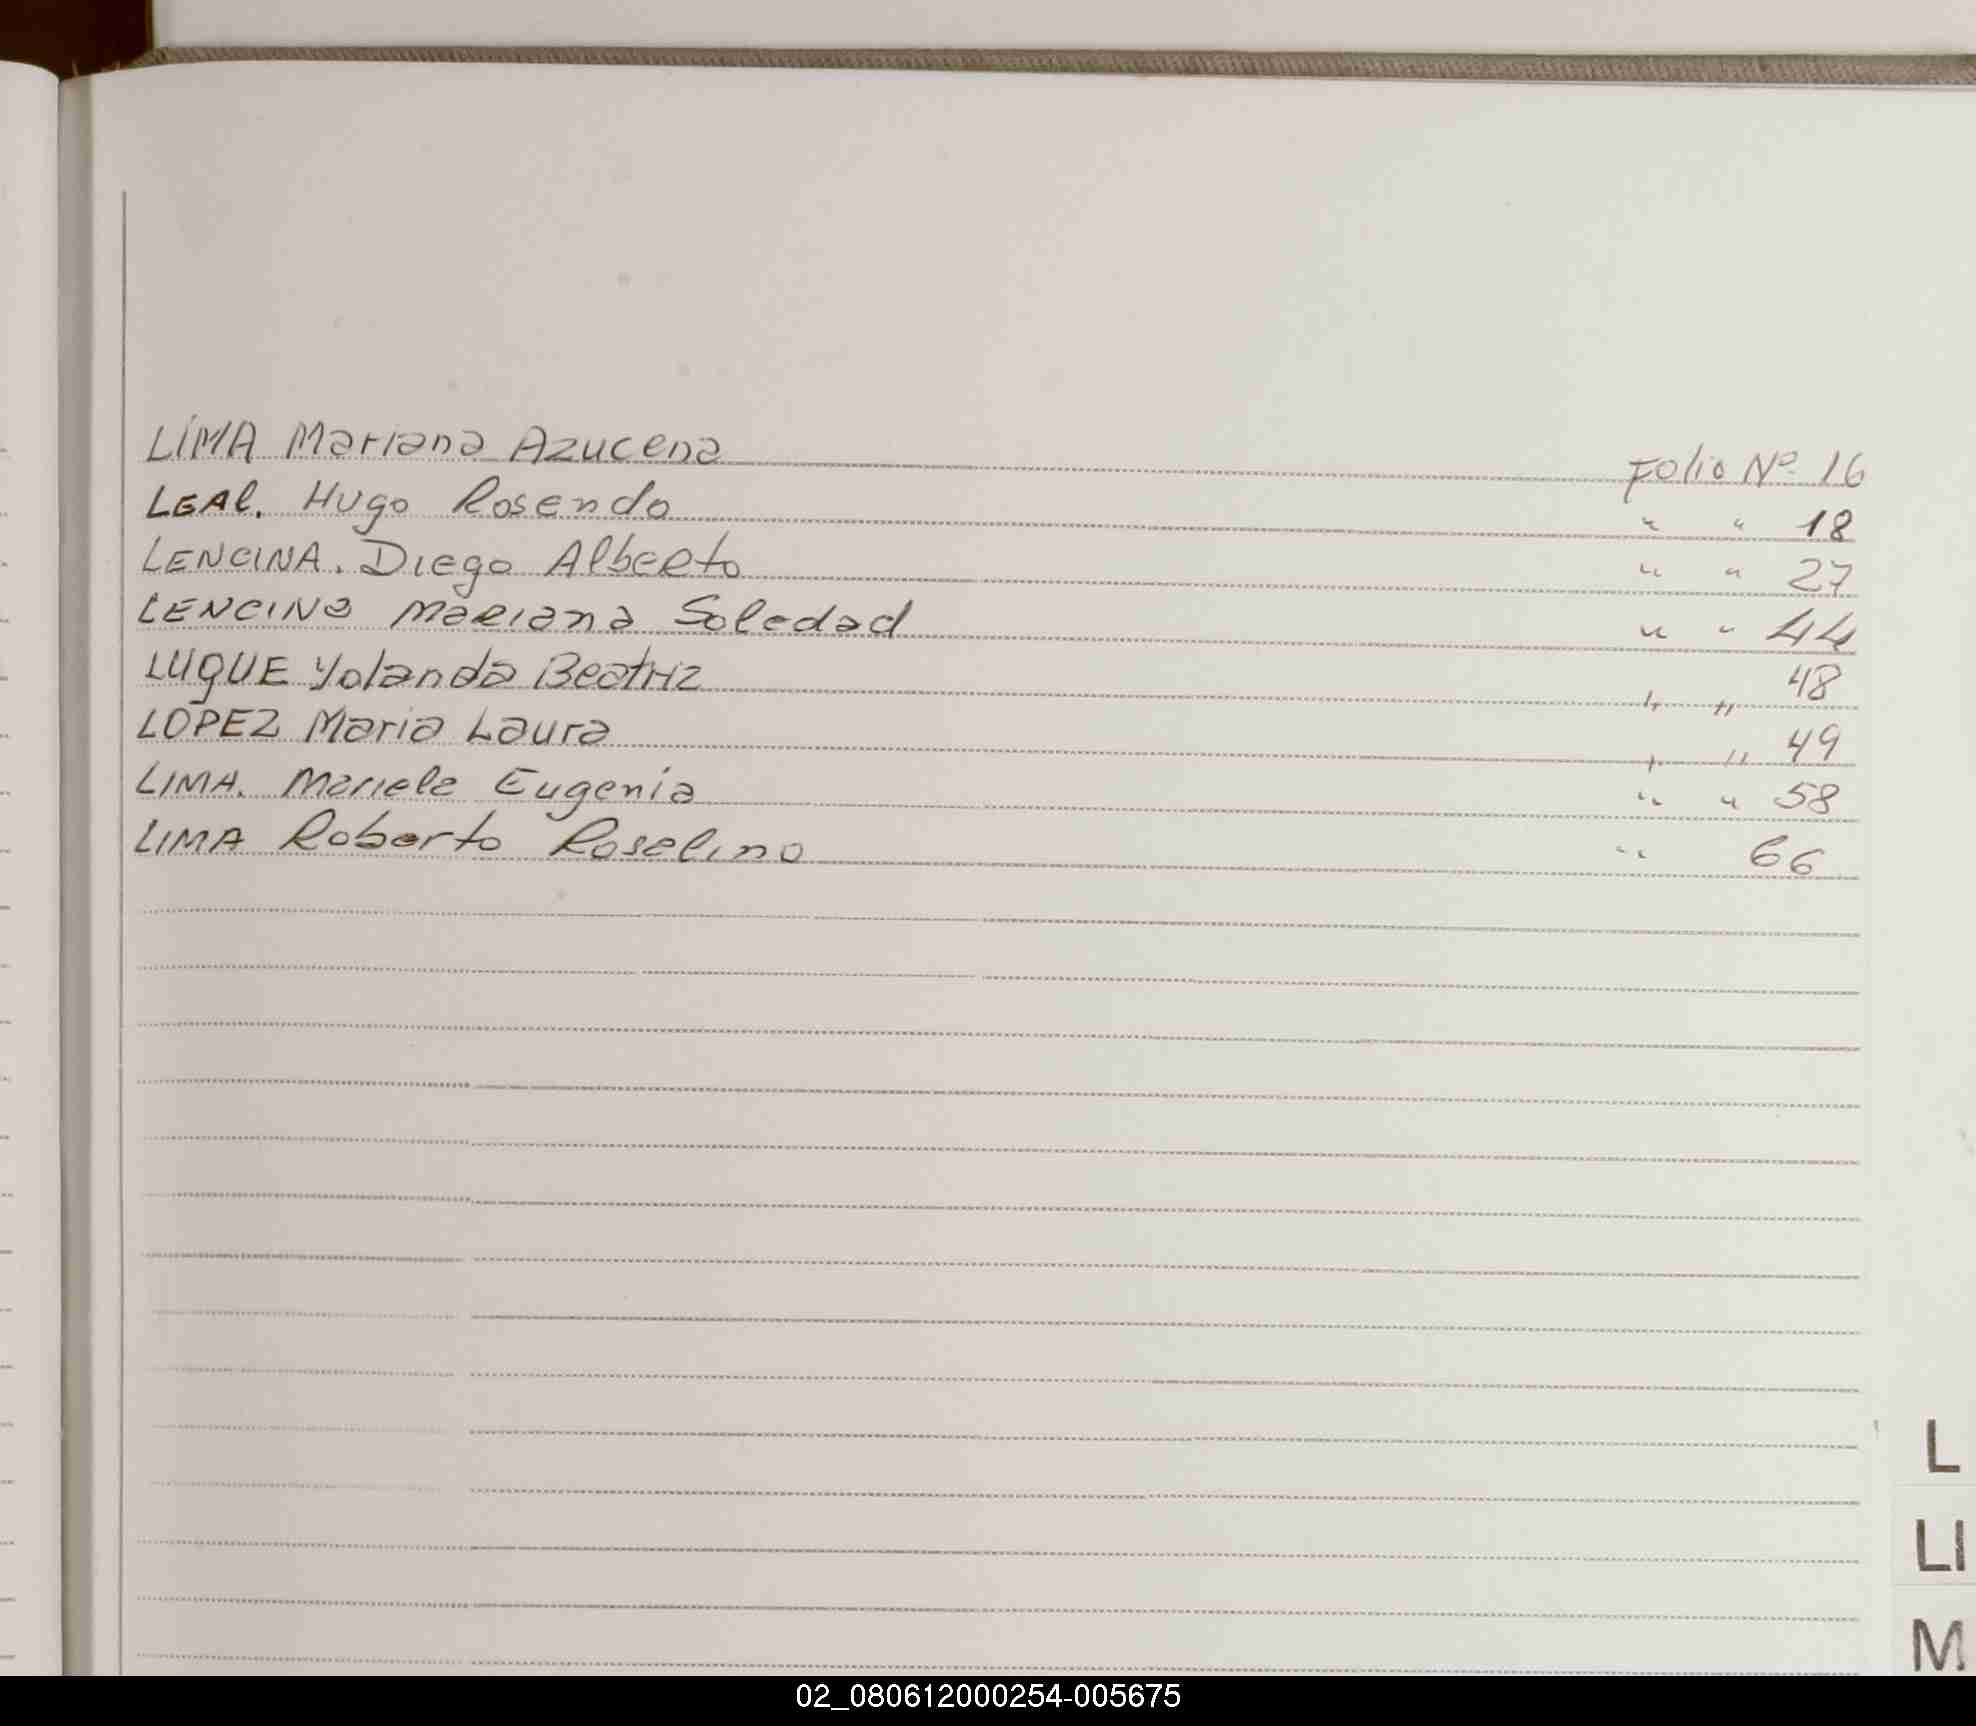 LIMA Mariana Azucena Folio Nº 16
LEAL. Hugo Rosendo " " 18
LENCINA. Diego Alberto " " 27
LENCINA Mariana Soledad " " 44
LUQUE Yolanda Beatriz " " 48
LOPEZ Maria Laura " " 49
LIMA. Mariela Eugenia " " 58
LIMA Roberto Roselino " 66
L
LI
M
02_080612000254-005675